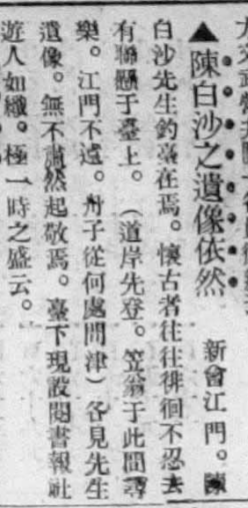 ▲陳白沙之遺像依然　新會江門。陳
白沙先生釣臺在焉。懷古者往往徘徊不忍去
有聯懸于臺上。（道岸先登。笠翁于此間尋
樂。江門不遠。舟子從何處問津）各見先生
遺像。無不肅然起敬焉。臺下現設閱書報社
遊人如織。極一時之盛云。